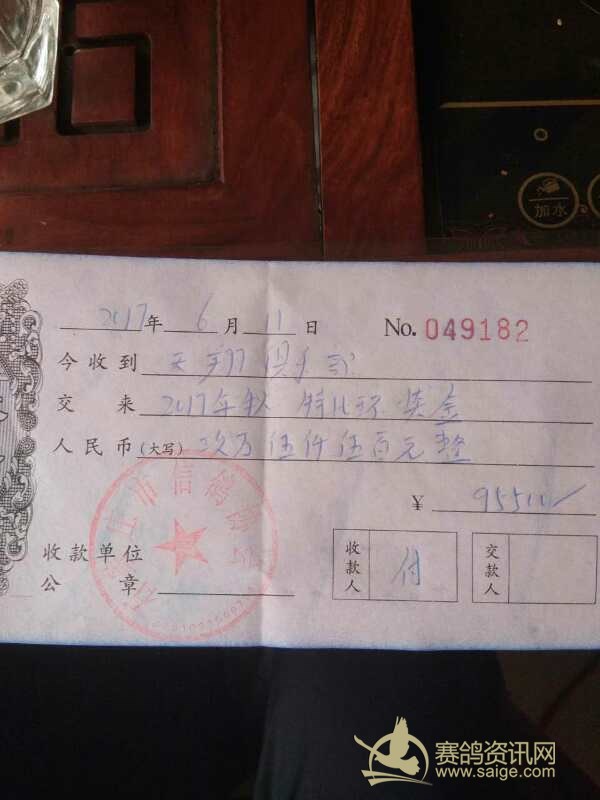 加水
2017年 6 月 11 日 No. 049182
今收到 天翔俱乐部
交来 2017年秋 特比环 奖金
人民币(大写) 玖万伍仟伍百元整
¥ 95500
收款单位
公章
收款人 付
交款人
市信鸽协会
赛鸽资讯网
www.saige.com